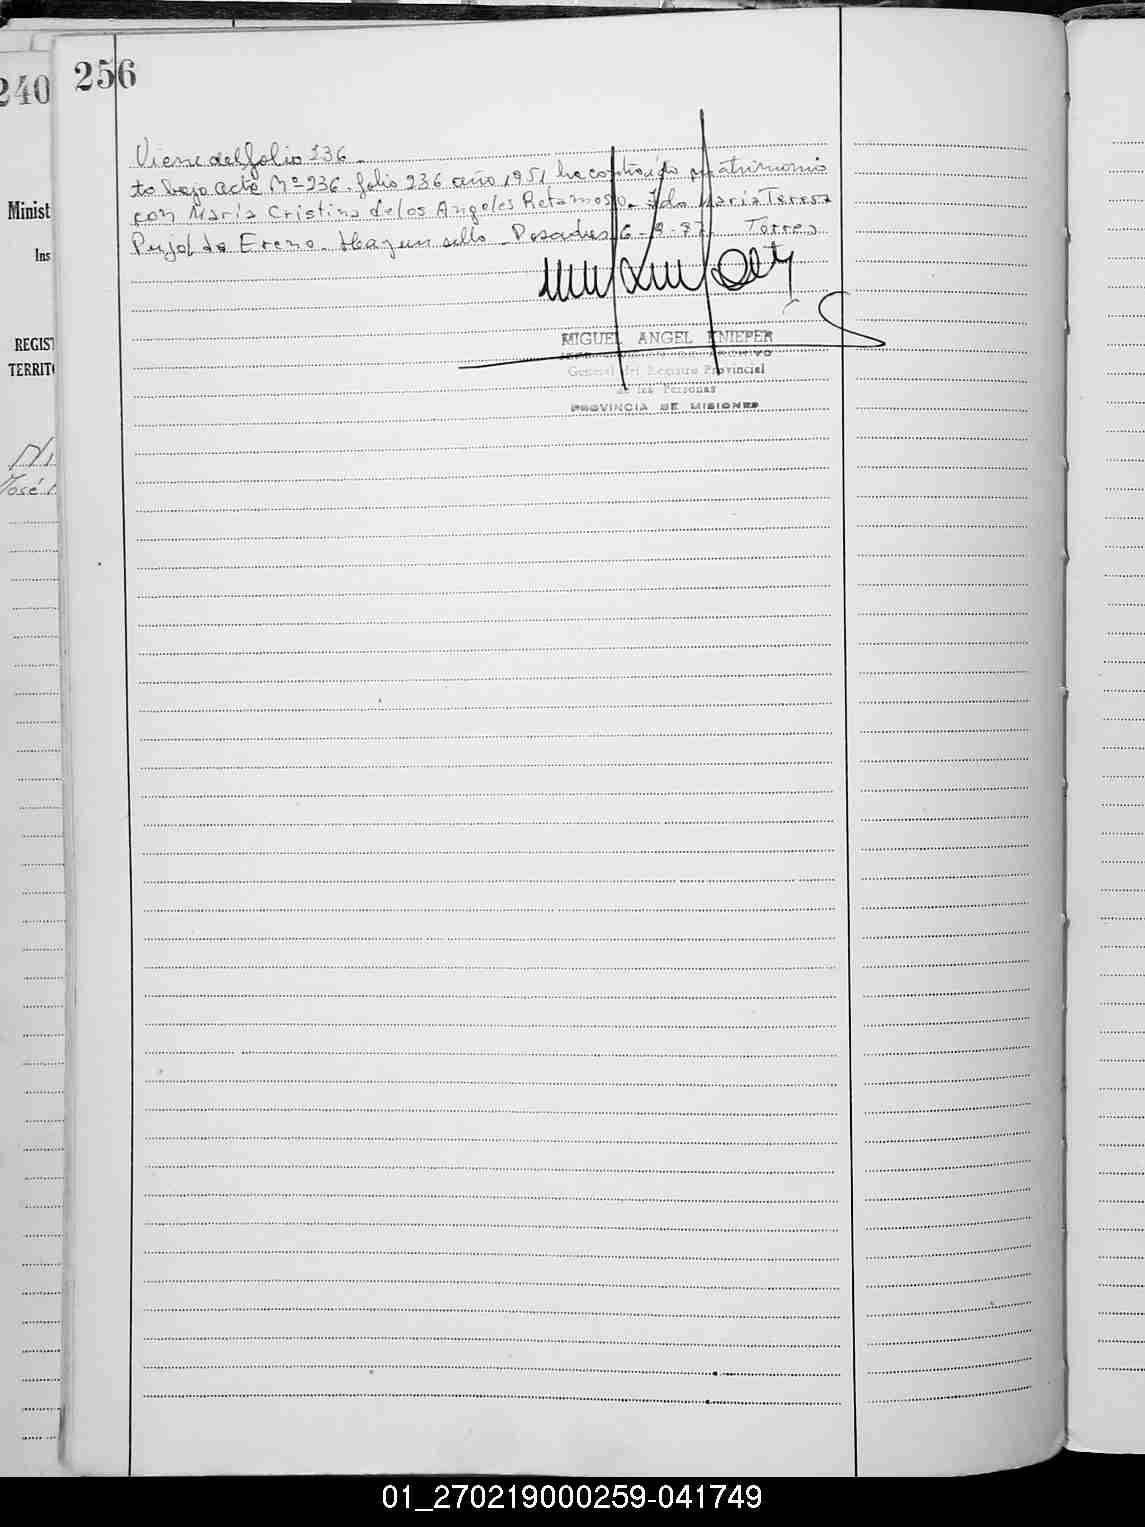 240
256
Viene del folio 236.
to bajo acta Nº 236. folio 236 año 1951 ha contraido matrimonio
con Maria Cristina de los Angeles Retamoso. Fdo Maria Teresa
Pujol de Erezo. Hay un sello - Posadas 6 - 87 Torres
Minist
Ins
REGIST
TERRITO
José
MIGUEL ANGEL KNIEPER
DE ARCHIVO
General del Registro Provincial
de las Personas
PROVINCIA DE MISIONES
01_270219000259-041749